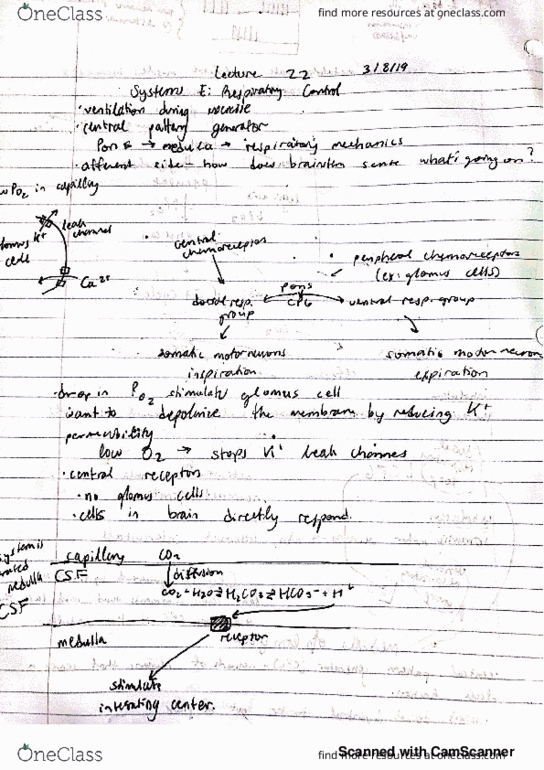 OneClass
find more resources at oneclass.com
Lecture 22 3/8/19
Systems E: Respiratory Control
· ventilation during exercise
· central pattern generator
Pons → medulla → respiratory mechanics
· afferent side - how does brainstem sense what's going on?
PO2 in capillary
leak channel
K+
glomus cell
Ca2+
central chemoreceptor
peripheral chemoreceptors
(ex: glomus cells)
pons
dorsal resp. group
CPG
ventral resp. group
somatic motor neurons
inspiration
somatic motor neuron
expiration
· drop in PO2 stimulate glomus cell
want to depolarize the membrane by reducing K+
permeability
low O2 → stops K+ leak channels
· central receptors
· no glomus cells
· cells in brain directly respond.
capillary CO2
system is
medulla
CSF
diffusion
CO2 + H2O ⇌ H2CO3 ⇌ HCO3- + H+
CSF
receptor
medulla
stimulate
integrating center.
OneClass
find more resources at oneclass.com
Scanned with CamScanner